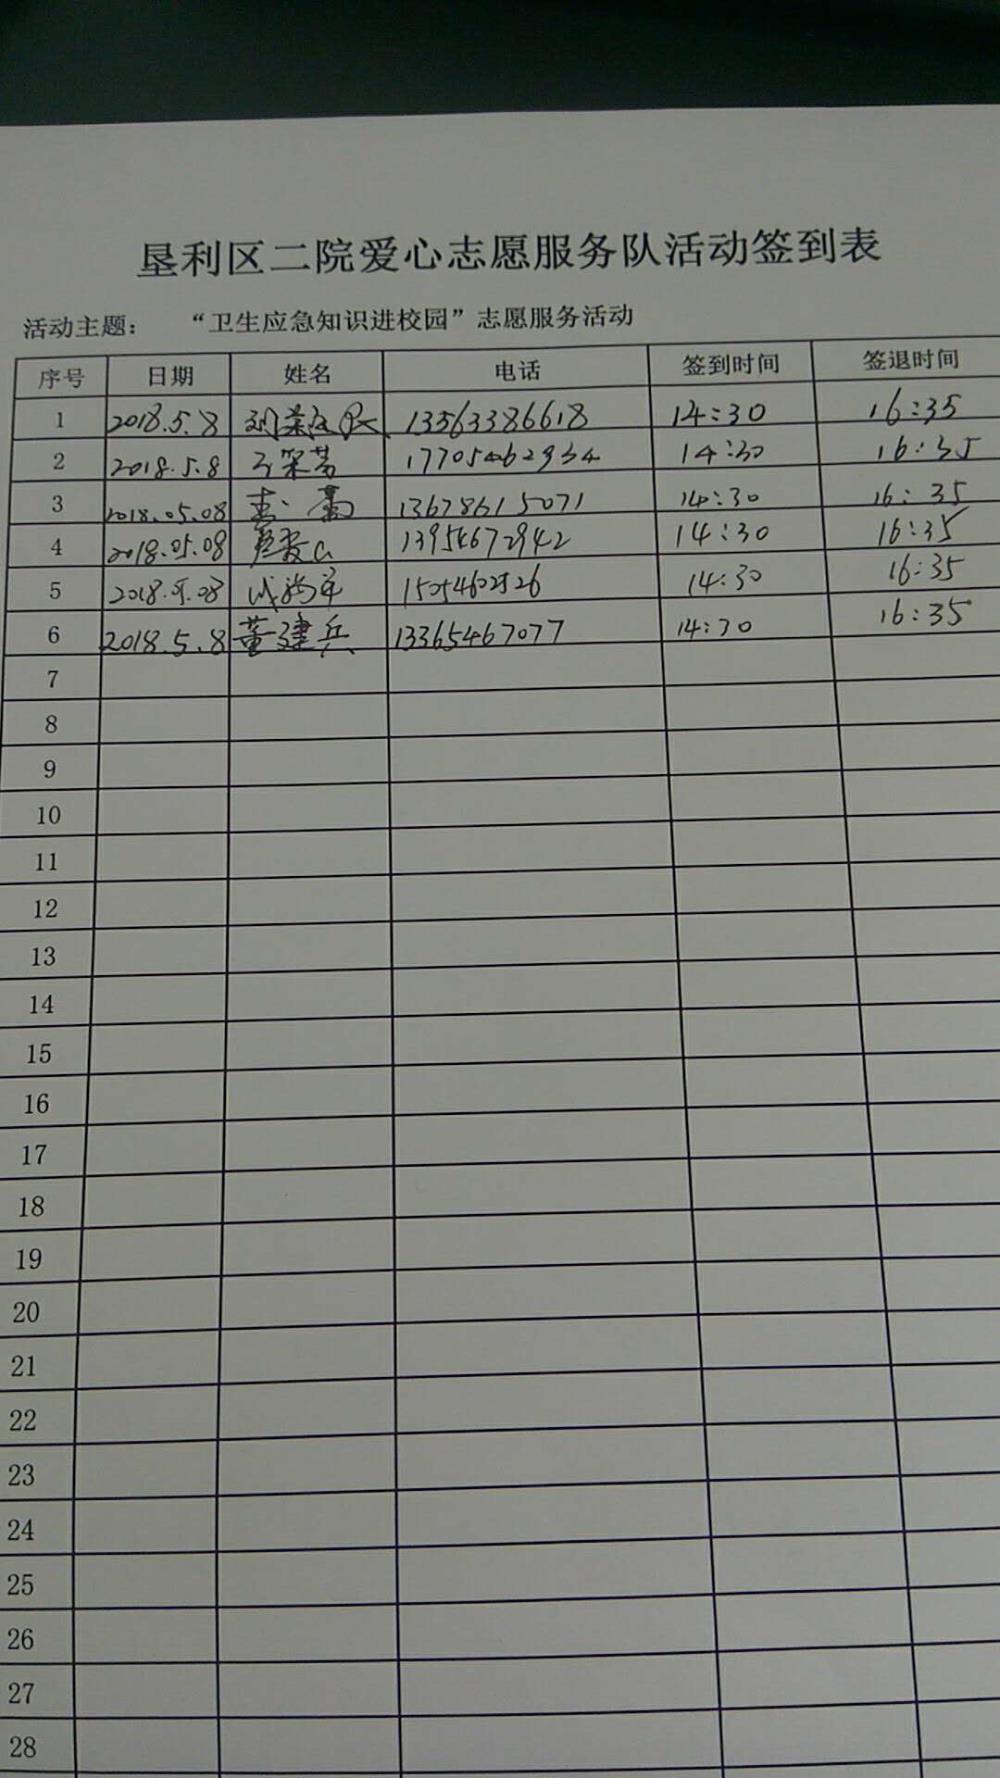 垦利区二院爱心志愿服务队活动签到表
活动主题： “卫生应急知识进校园”志愿服务活动
序号 日期 姓名 电话 签到时间 签退时间
1 2018.5.8 13563386618 14:30 16:35
2 2018.5.8 14:30 16:35
3 2018.05.08 13678615071 14:30 16:35
4 2018.05.08 13954672942 14:30 16:35
5 2018.5.08 14:30 16:35
6 2018.5.8 董建兵 13365467077 14:30 16:35
7
8
9
10
11
12
13
14
15
16
17
18
19
20
21
22
23
24
25
26
27
28